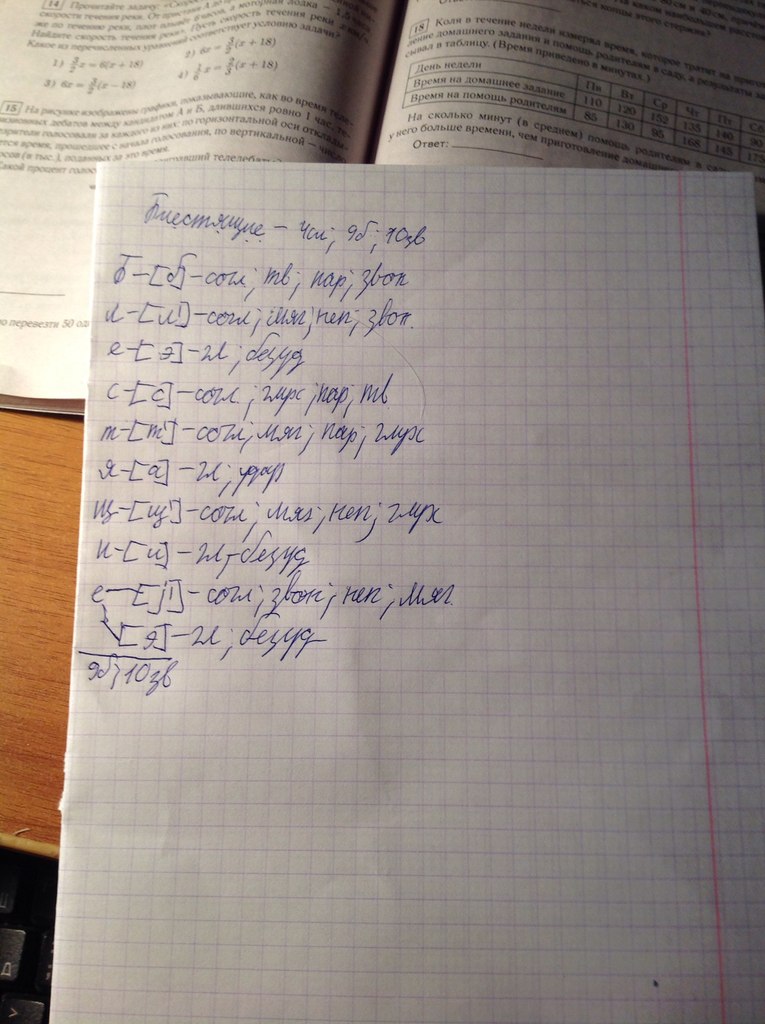 14 Прочитайте задачу: «Скорость
скорости течения реки. От пристани А до
же по течению реки, плот плыл
Найдите скорость течения реки». Пусть скорость течения реки
Какое из перечисленных уравнений соответствует условию задачи?
1) 3/2 x = 6(x + 18)
2) 6x = 3/2 (x + 18)
3) 6x = 3/2 (x − 18)
4) 1/6 x = 2/3 (x + 18)
15 На рисунке изображены графики, показывающие, как во время теле-
визионных дебатов между кандидатами А и Б, длившихся ровно 1 час, те-
зрители голосовали за каждого из них: по горизонтальной оси отклады-
ется время, прошедшее с начала голосования, по вертикальной — число
осов (в тыс.), поданных за это время.
о перевезти 50
концы этого стержня?
18 Коля в течение недели измерял время, которое тратит на приготов-
ление домашнего задания и помощь родителям в саду, а результаты за-
сывал в таблицу. (Время приведено в минутах.)
День недели Пн Вт Ср Чт Пт Сб
Время на домашнее задание 110 120 152 135 146 90
Время на помощь родителям 85 130 95 168 145 175
На сколько минут (в среднем) помощь родителям в саду
у него больше времени, чем приготовление домашнего
Ответ:
Блестящие – 4сл; 9б; 10зв
Б – [б] – согл; тв; пар; звон
л – [л'] – согл; мяг; неп; звон.
е – [э] – гл; безуд
с – [с] – согл.; глух; пар; тв
т – [т'] – согл; мяг; пар; глух
я – [а] – гл; удар
щ – [щ'] – согл; мяг; неп; глух
и – [и] – гл; безуд
е – [j'] – согл; звон; неп; мяг.
[э] – гл; безуд
9б; 10зв
Д